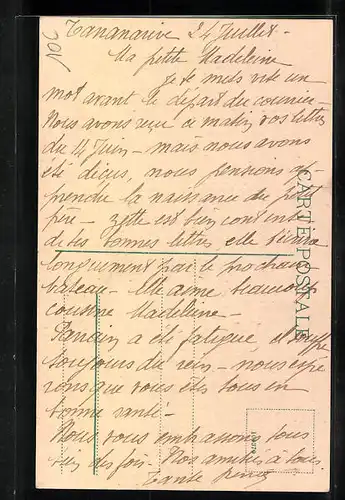 Tananarive 24 Juillet -
Ma petite Madeleine
Je te mets vite un
mot avant le départ du courrier -
Nous avons reçu ce matin vos lettres
du 14 Juin - mais nous avons
été déçus, nous pensions ap
prendre la naissance du petit
frère - est bien contente
de tes bonnes lettres, elle
longuement par le prochain
bateau - Elle aime beaucoup
cousine Madeleine -
a été fatigué, et souffre
toujours du rein - nous espé
rons que vous êtes tous en
bonne santé -
Nous vous embrassons tous
bien des fois - Nos amitiés à tous
Tante
CARTE POSTALE